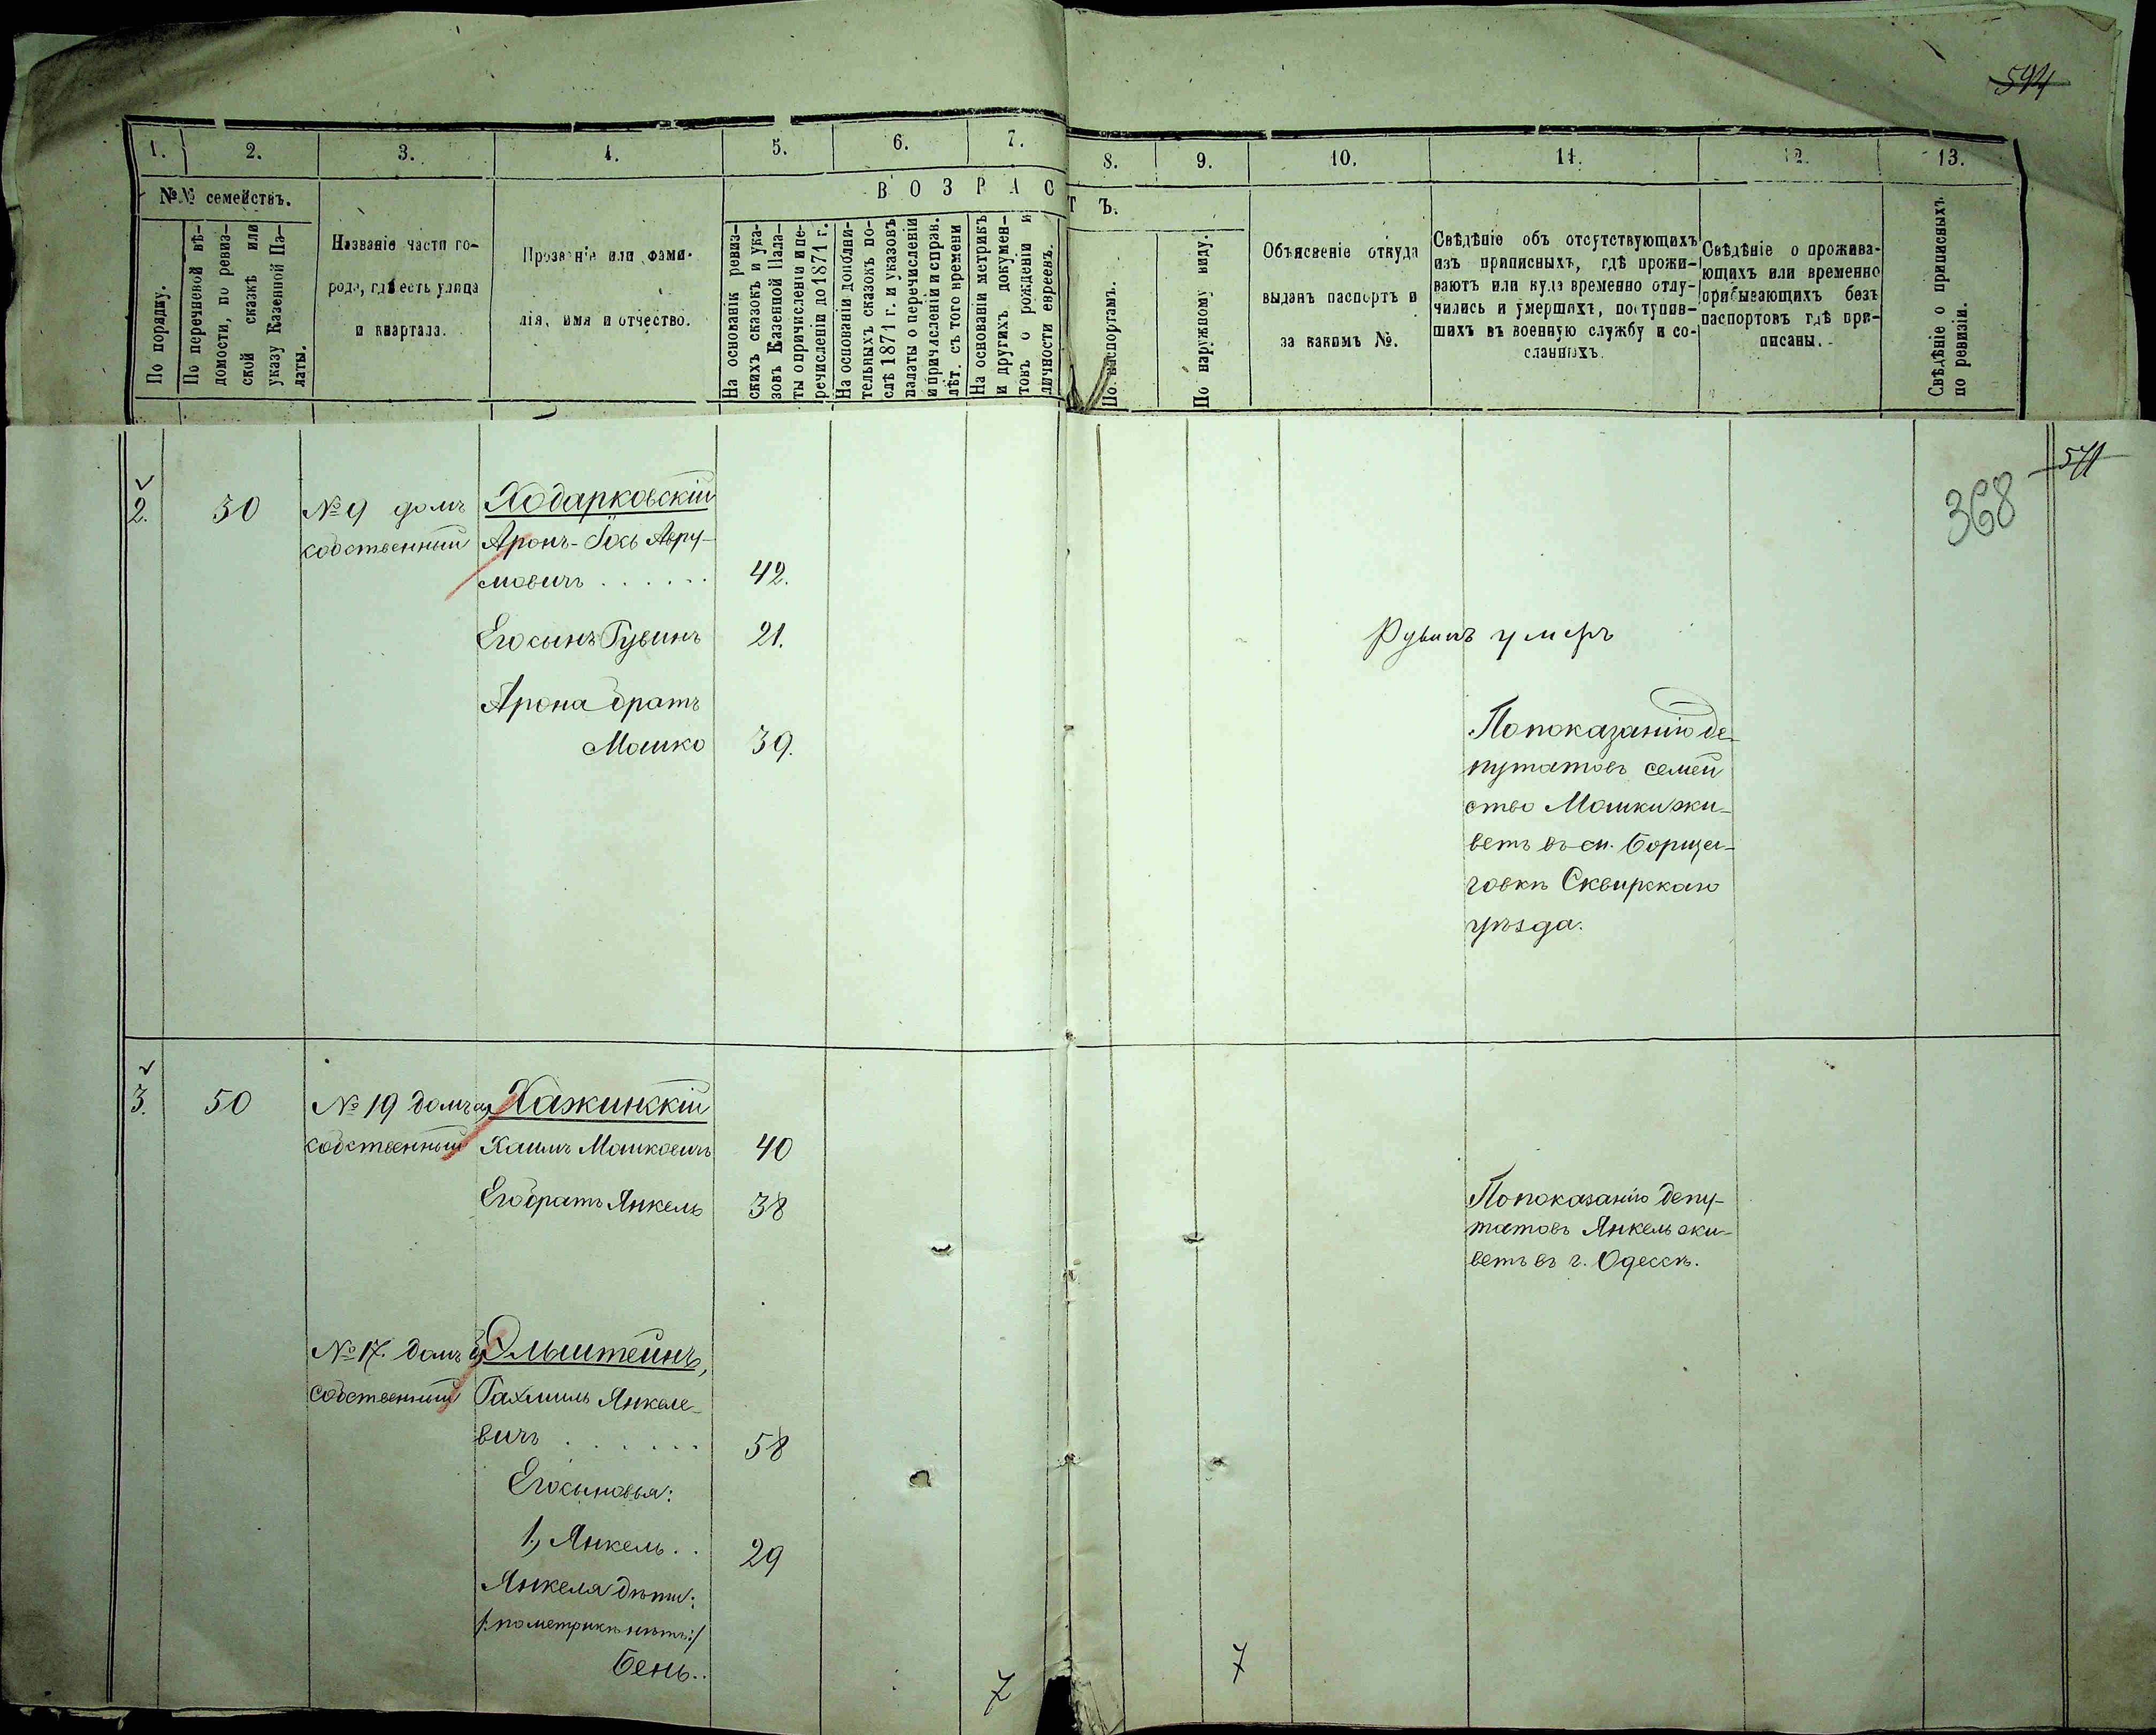 594
1. 2. 3. 4. 5. 6. 7. 8. 9. 10. 11. 12. 13.
№№ семействъ.
По порядку.
По перечневой вѣ-
домости, по ревиз-
ской сказкѣ или
указу Казенной Па-
латы.
Названіе части го-
рода, гдѣ есть улица
и квартала.
Прозваніе или фами-
лія, имя и отчество.
ВОЗРАСТЪ.
На основаніи ревиз-
скихъ сказокъ и ука-
зовъ Казенной Пала-
ты о причисленіи и пе-
речисленіи до 1871 г.
На основаніи дополни-
тельныхъ сказокъ по-
слѣ 1871 г. и указовъ
палаты о перечисленіи
и причисленіи и справ.
лѣт. съ того времени
На основаніи метрикъ
и другихъ докумен-
товъ о рожденіи и
личности евреевъ.
По паспортамъ.
По наружному виду.
Объясненіе откуда
выданъ паспортъ и
за какимъ №.
Свѣдѣніе объ отсутствующихъ
изъ приписныхъ, гдѣ прожи-
ваютъ или куда временно отлу-
чились и умершихъ, поступив-
шихъ въ военную службу и со-
сланныхъ.
Свѣдѣніе о прожива-
ющихъ или временно
прибывающихъ безъ
паспортовъ гдѣ при-
писаны.
Свѣдѣніе о приписныхъ
по ревизіи.
571
368
2. 30 № 9 домъ Ходарковскій
собственный Аронъ-Іось Авру-
мовичъ . . . . . . 42.
Его сынъ Рувинъ 21. Рувинъ умеръ
Арона братъ
Мошко 39.
По показанію де-
путатовъ семей
ство Мошки жи-
ветъ въ см. Борща-
говкѣ Сквирскаго
уѣзда.
3. 50 № 19 домъ Хажинскій
собственный Хаимъ Мошковичъ 40
Его братъ Янкель 38
По показанію депу-
татовъ Янкель жи-
ветъ въ г. Одессѣ.
№ 17. домъ Ольштейнъ,
собственный Рахмиль Янкеле-
вичъ . . . . . . 58
Его сыновья:
1., Янкель . . 29
Янкеля дѣти:
/:по метрикѣ нѣтъ:/
Бень..
7 7